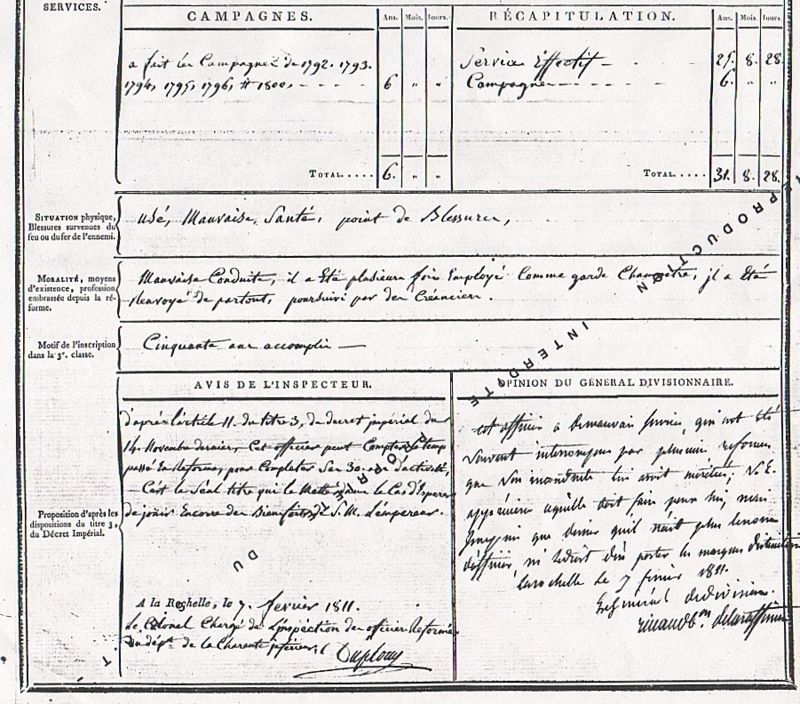 SERVICES.
CAMPAGNES.
Ans. Mois. Jours.
a fait les Campagnes de 1792. 1793.
1794, 1795, 1796, et 1800, - - - - 6 " "
TOTAL..... 6. " "
RÉCAPITULATION.
Ans. Mois. Jours.
Service Effectif - 25. 8. 28.
Campagnes - - - - 6. " "
TOTAL..... 31. 8. 28.
SITUATION physique,
Blessures survenues du
feu ou du fer de l'ennemi.
Usé, Mauvaise Santé, point de Blessures,
MORALITÉ, moyens
d'existence, profession
embrassée depuis la ré-
forme.
Mauvaise Conduite, il a Eté plusieurs fois Employé Comme garde Champetre, il a Eté
Renvoyé de partout, poursuivi par des Créanciers.
Motif de l'inscription
dans la 3e. classe.
Cinquante ans accomplis —
Proposition d'après les
dispositions du titre 3,
du Décret Impérial.
AVIS DE L'INSPECTEUR.
d'après l'article 11. du titre 3, du decret impérial du
14. Novembre dernier, Cet officier peut Compter le temps
passé En Reforme, pour Completer Ses 30. ans d'activité,
— C'est le Seul titre qui le Mette dans le Cas d'Esperer
de jouir Encore des Bienfaits de S. M. L'empereur.
A la Rochelle, le 7. fevrier 1811.
Le Colonel Chargé de L'inspection des officiers Reformés
du dépt. de la Charente inférieure
OPINION DU GÉNÉRAL DIVISIONNAIRE.
cet officier a de mauvais services, qui ont été
souvent interrompus par plusieurs reformes
que Son inconduite lui avoit meritées,
Larochelle le 7 fevrier 1811.
Le général de division
REPRODUCTION
INTERDITE
DU